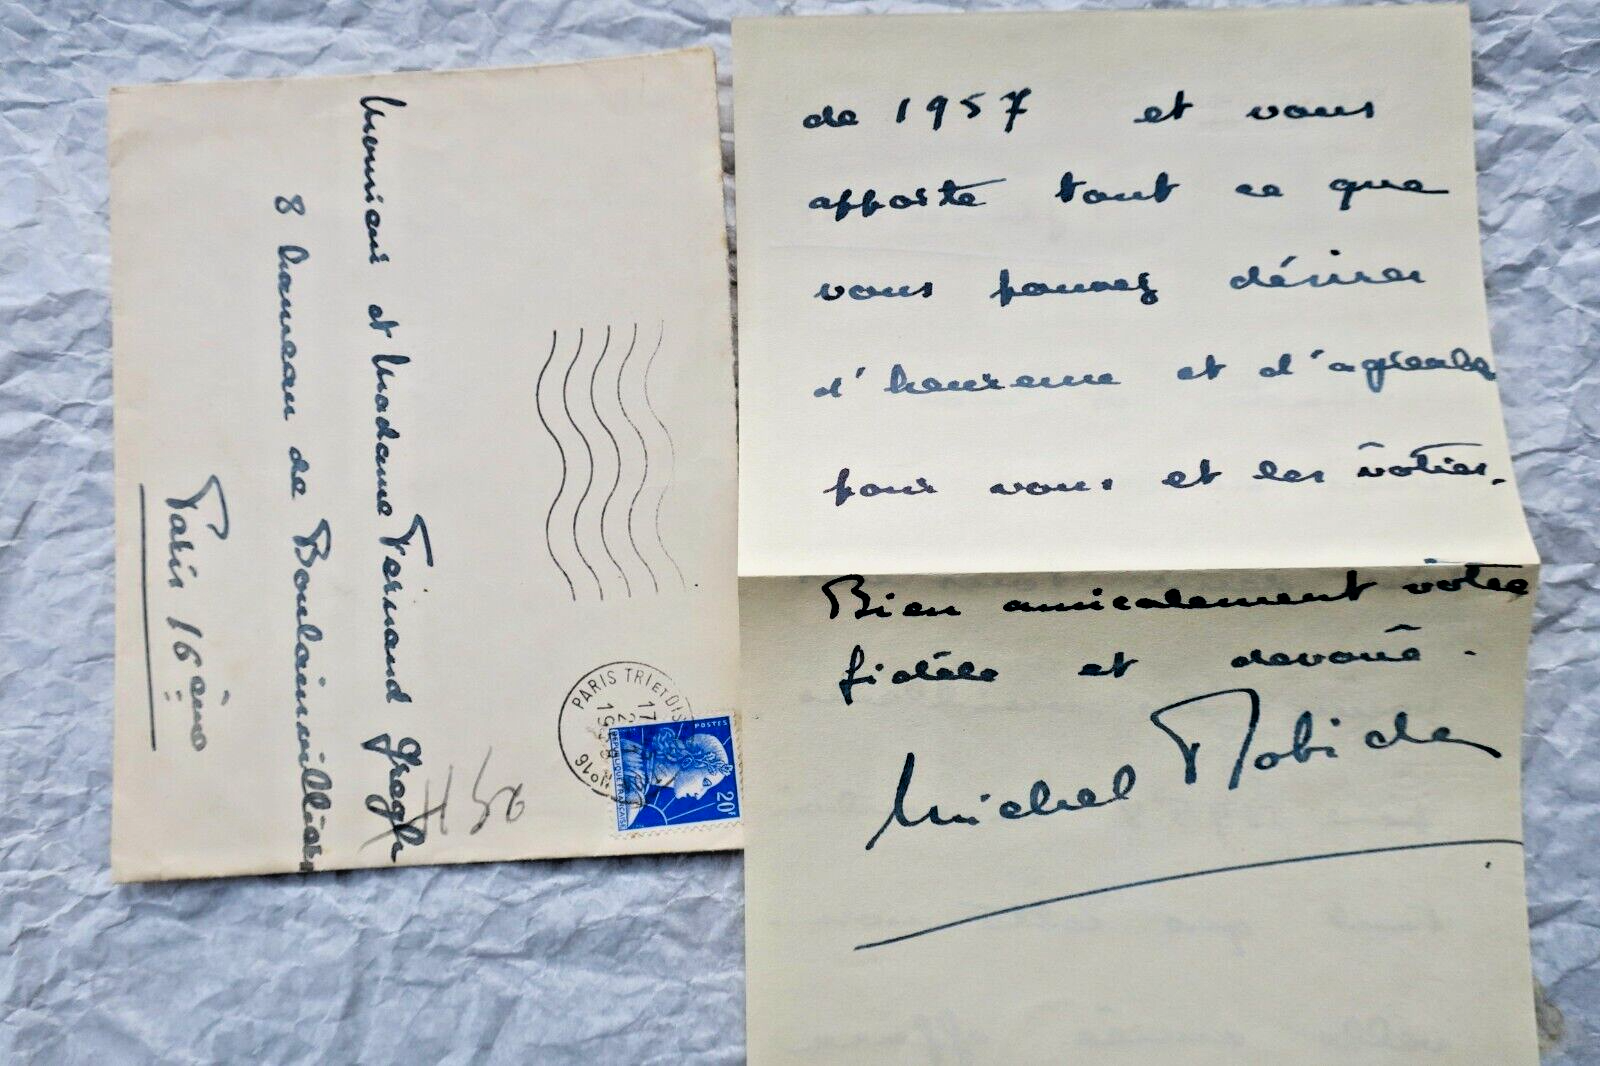 Monsieur et Madame Fernand Gregh
8 hameau de Boulainvilliers
Paris 16ème
PARIS TRI ET DIS
17
POSTES
20F
REPUBLIQUE FRANÇAISE
de 1957 et vous
apporte tout ce que
vous pouvez désirer
d'heureux et d'agréable
pour vous et les vôtres.
Bien amicalement votre
fidèle et dévoué.
Michel Robida